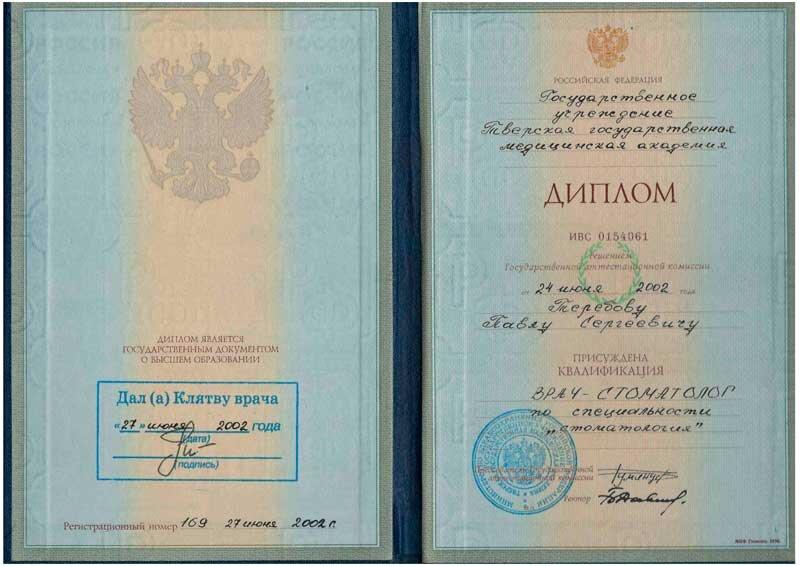 ДИПЛОМ ЯВЛЯЕТСЯ
ГОСУДАРСТВЕННЫМ ДОКУМЕНТОМ
О ВЫСШЕМ ОБРАЗОВАНИИ
Дал (а) Клятву врача
«27» июня 2002 года
(дата)
(подпись)
Регистрационный номер 169 27 июня 2002 г.
РОССИЙСКАЯ ФЕДЕРАЦИЯ
Государственное
учреждение
Тверская государственная
медицинская академия
ДИПЛОМ
ИВС 0154061
Решением
Государственной аттестационной комиссии
от 24 июня 2002 года
Теребову
Павлу Сергеевичу
ПРИСУЖДЕНА
КВАЛИФИКАЦИЯ
ВРАЧ-СТОМАТОЛОГ
по специальности
"стоматология"
Председатель Государственной
аттестационной комиссии
Ректор